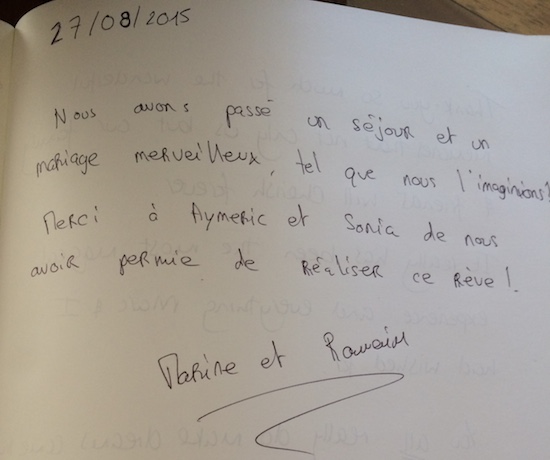 27/08/2015
Nous avons passé un séjour et un
mariage merveilleux, tel que nous l'imaginions!
Merci à Aymeric et Sonia de nous
avoir permie de réaliser ce rêve!
Marine et Romain